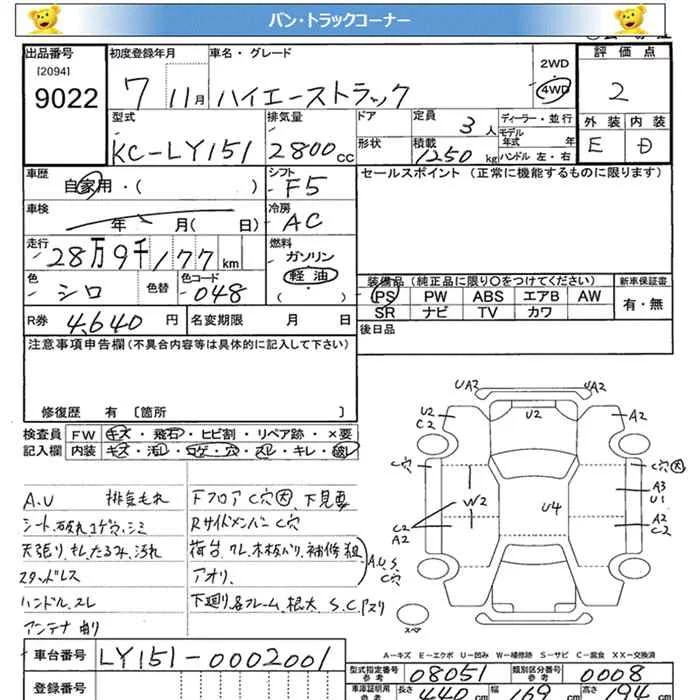 バン・トラックコーナー
出品番号 初度登録年月 車名・グレード 評価点
[2094] 2WD
9022 7 11月 ハイエーストラック 4WD 2
型式 排気量 ドア 定員 3人 ディーラー・並行 外装 内装
KC-LY151 2800cc 形状 積載 1250kg モデル年式 年 ハンドル 左・右 E D
車歴 自家用・( ) シフト F5 セールスポイント(正常に機能するものに限ります)
車検 年 月( 日) 冷房 AC
走行 28万9千177km 燃料 ガソリン 軽油 ( ・ )
色 シロ 色替 色コード 048
装備品(純正品に限り○をつけてください) 新車保証書
PS PW ABS エアB AW 有・無
SR ナビ TV カワ
R券 4,640円 名変期限 月 日 後日品
注意事項申告欄(不具合内容等は具体的に記入して下さい)
修復歴 有〔箇所 〕
検査員 FW キズ・飛石・ヒビ割・リペア跡・×要
記入欄 内装 キズ・汚レ・コゲ・穴・スレ・キレ・破レ
A.U 排気もれ
シート破れコゲ穴シミ
天張り、もしたるみ、汚れ
スタッドレス
ハンドルスレ
アンテナ曲り
Fフロア C穴大 下見要
RサイドメンバーC穴
荷台、ワレ、木板バリ、補修 粗
アオリ、 A.U.S. C穴
下廻り各フレーム、根太 S.Cアリ
UA2 UA2
U2 C2 U2 A2
C穴 C穴大
W2 A3 U1
C2 A2 U4 A2 C2
スペア
A-キズ E-エクボ U-凹み W-補修跡 S-サビ C-腐食 XX-交換済
車台番号 LY151-0002001
型式指定番号 参考 08051 類別区分番号 参考 0008
登録番号 車庫証明用 参考 長さ 440cm 幅 169cm 高さ 194cm